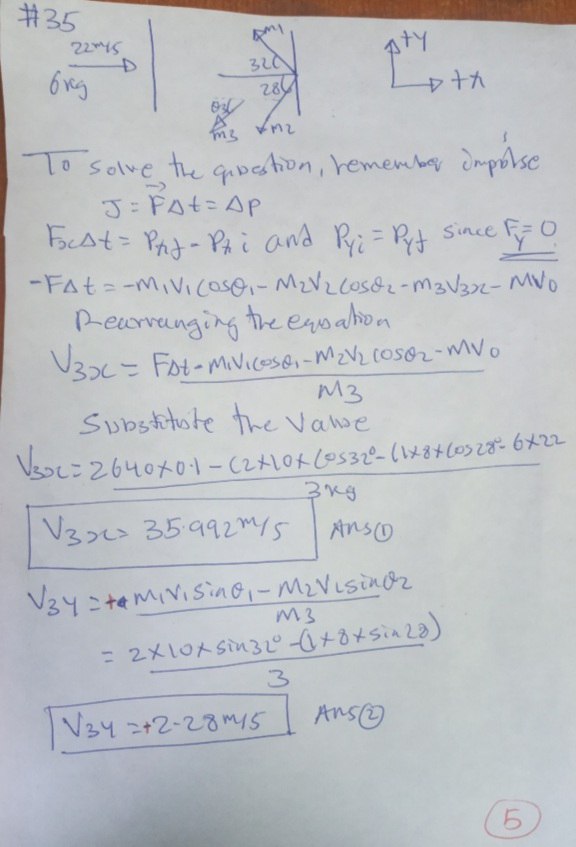 #35
22m/s
6kg
m1
32
28
θ3
m3
m2
+y
+x
To solve the question, remember impulse
J = F⃗Δt = ΔP
FxΔt = Pxf - Pxi and Pyi = Pyf since Fy = 0
-FΔt = -m1v1cosθ1 - m2v2cosθ2 - m3v3x - mv0
Rearranging the equation
V3x = FΔt - m1v1cosθ1 - m2v2cosθ2 - mv0
m3
Substitute the Value
V3x = 2640×0.1 - (2×10×cos32° - (1×8×cos28° - 6×22
3kg
V3x = 35.992m/s Ans①
V3y = + m1v1sinθ1 - m2v2sinθ2
m3
= 2×10×sin32° - (1×8×sin28)
3
V3y = +2.28m/s Ans②
5